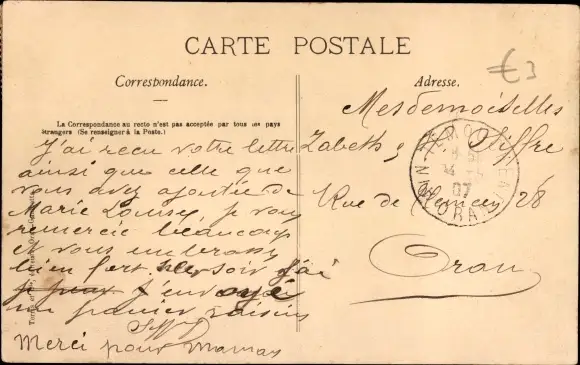 CARTE POSTALE
Correspondance.
La Correspondance au recto n'est pas acceptée par tous les pays
étrangers (Se renseigner à la Poste.)
J'ai recu votre lettre
ainsi que celle que
vous avez ajoutie de
Marie Louise, je vous
remercie beaucoup
et vous embrasse
bien fort. soir j'ai
je peux j'envoyé
un panier raisins
Merci pour maman
Adresse.
€ 3
Mesdemoiselles
Zabeth & Siffre
Rue de 28
Oran
07
ORAN